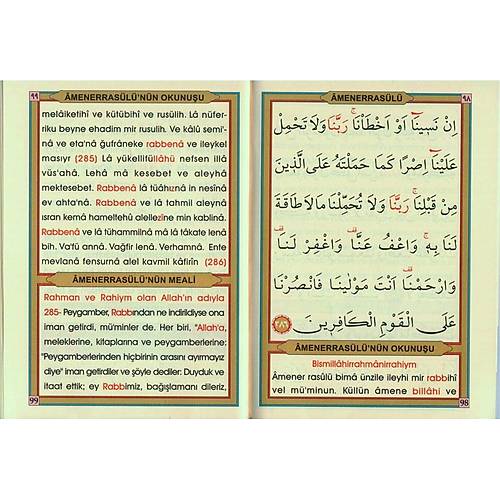 ٩٨
ÂMENERRASÜLÜ
اِنْ نَسِينَٓا اَوْ اَخْطَأْنَا رَبَّنَا وَلَا تَحْمِلْ
عَلَيْنَٓا اِصْرًا كَمَا حَمَلْتَهُ عَلَى الَّذِينَ
مِنْ قَبْلِنَا رَبَّنَا وَلَا تُحَمِّلْنَا مَا لَا طَاقَةَ
لَنَا بِهِ وَاعْفُ عَنَّا وَاغْفِرْ لَنَا
وَارْحَمْنَا اَنْتَ مَوْلٰينَا فَانْصُرْنَا
عَلَى الْقَوْمِ الْكَافِرِينَ
ÂMENERRASÜLÜ'NÜN OKUNUŞU
Bismillâhirrahmânirrahiym
Âmener rasûlü bimâ ünzile ileyhi mir rabbihî
vel mü'minun. Küllün âmene billâhi ve
98
٩٩
ÂMENERRASÜLÜ'NÜN OKUNUŞU
melâiketihî ve kütübihî ve rusülih. Lâ nüfer-
riku beyne ehadim mir rusulih. Ve kâlû semi'-
nâ ve eta'nâ ğufraneke rabbenâ ve ileykel
masıyr (285) Lâ yükellifullâhü nefsen illâ
vüs'ahâ. Lehâ mâ kesebet ve aleyhâ
mektesebet. Rabbenâ lâ tüâhıznâ in nesînâ
ev ahta'nâ. Rabbenâ ve lâ tahmil aleynâ
ısran kemâ hameltehû alellezîne min kablinâ.
Rabbenâ ve lâ tühammilnâ mâ lâ tâkate lenâ
bih. Va'fü annâ. Vağfir lenâ. Verhamnâ. Ente
mevlanâ fensurnâ alel kavmil kâfirîn (286)
ÂMENERRASÜLÜ'NÜN MEALİ
Rahman ve Rahiym olan Allah'ın adıyla
285- Peygamber, Rabbından ne indirildiyse ona
iman getirdi, mü'minler de. Her biri, "Allah'a,
meleklerine, kitaplarına ve peygamberlerine:
"Peygamberlerinden hiçbirinin arasını ayırmayız
diye" iman getirdiler ve şöyle dediler: Duyduk ve
itaat ettik; ey Rabbimiz, bağışlamanı dileriz,
99